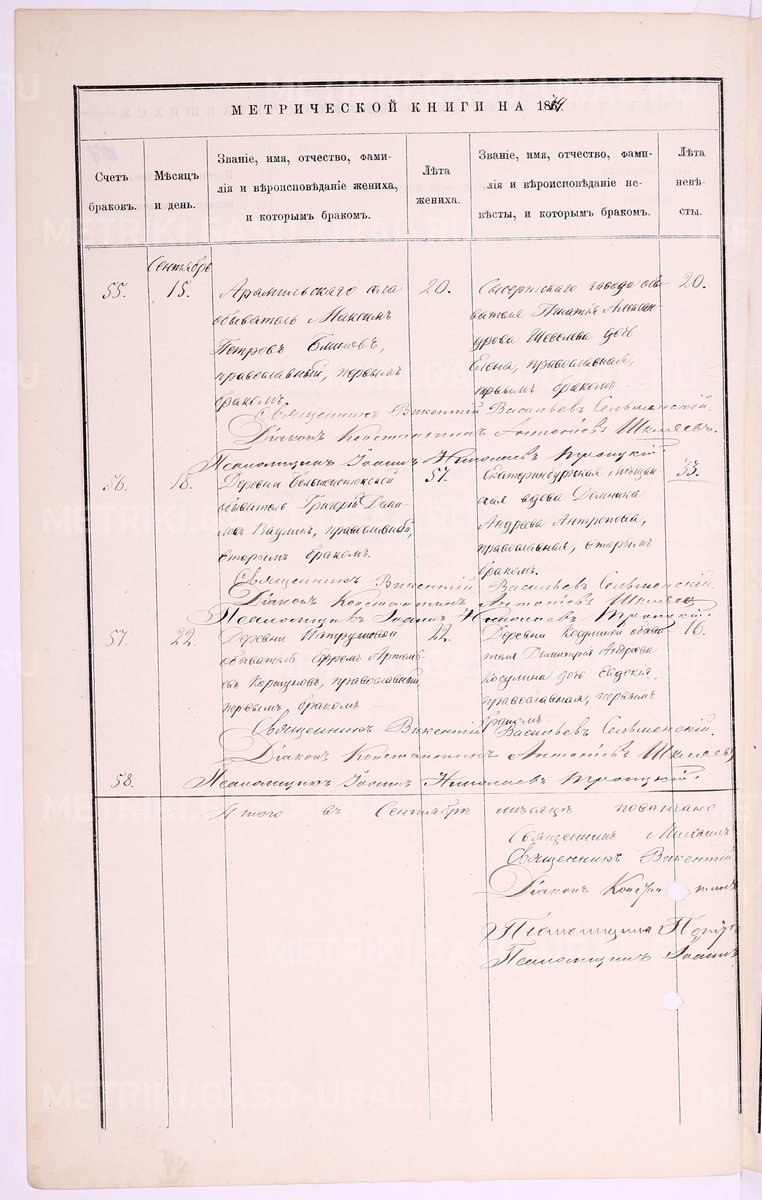 МЕТРИЧЕСКОЙ КНИГИ НА 18
Счетъ браковъ.
Мѣсяцъ и день.
Званіе, имя, отчество, фами-
лія и вѣроисповѣданіе жениха,
и которымъ бракомъ.
Лѣта жениха.
Званіе, имя, отчество, фами-
лія и вѣроисповѣданіе не-
вѣсты, и которымъ бракомъ.
Лѣта невѣ-
сты.
Сентябрь
55.
15.
Арамильскаго села
обыватель Максимъ
Петровъ
православный, первымъ
бракомъ
20.
Сысертскаго завода обы-
вателя Игнатія Алексан
дрова дочь
Елена, православная,
первымъ бракомъ
20.
Священникъ Викентій Васильевъ Сельменскій.
Діаконъ Константинъ Антоніевъ Шкляевъ.
Псаломщикъ Іоаннъ Николаевъ Троицкій.
56.
18.
Деревни
обыватель Григорій Дани
ловъ Ваулинъ, православный,
вторымъ бракомъ.
57.
Екатеринбургская мѣщан
ская вдова Домника
Андреева Антропова,
православная, вторымъ
бракомъ.
33.
Священникъ Викентій Васильевъ Сельменскій
Діаконъ Константинъ Антоніевъ Шкляевъ
Псаломщикъ Іоаннъ Николаевъ Троицкій
57.
22.
Деревни Патрушевой
обыватель Ефремъ Артемь
евъ Коршуновъ, православный
первымъ бракомъ
22.
Деревни Косулиной обыва
теля Димитрія Андреева
Косулина дочь Евдокія,
православная, первымъ
бракомъ
16.
Священникъ Викентій Васильевъ Сельменскій.
Діаконъ Константинъ Антоніевъ Шкляевъ
Псаломщикъ Іоаннъ Николаевъ Троицкій.
58.
Итого въ Сентябрѣ мѣсяцѣ повѣнчано
Священникъ Михаилъ
Священникъ Викентій
Діаконъ
Псаломщикъ Петръ
Псаломщикъ Іоаннъ
METRIKI.GASO-URAL.RU